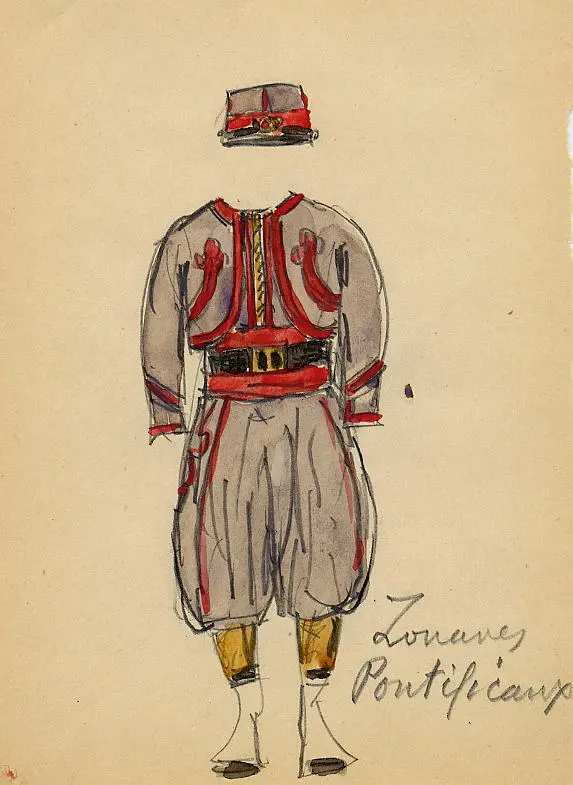 Zouaves
Pontificaux